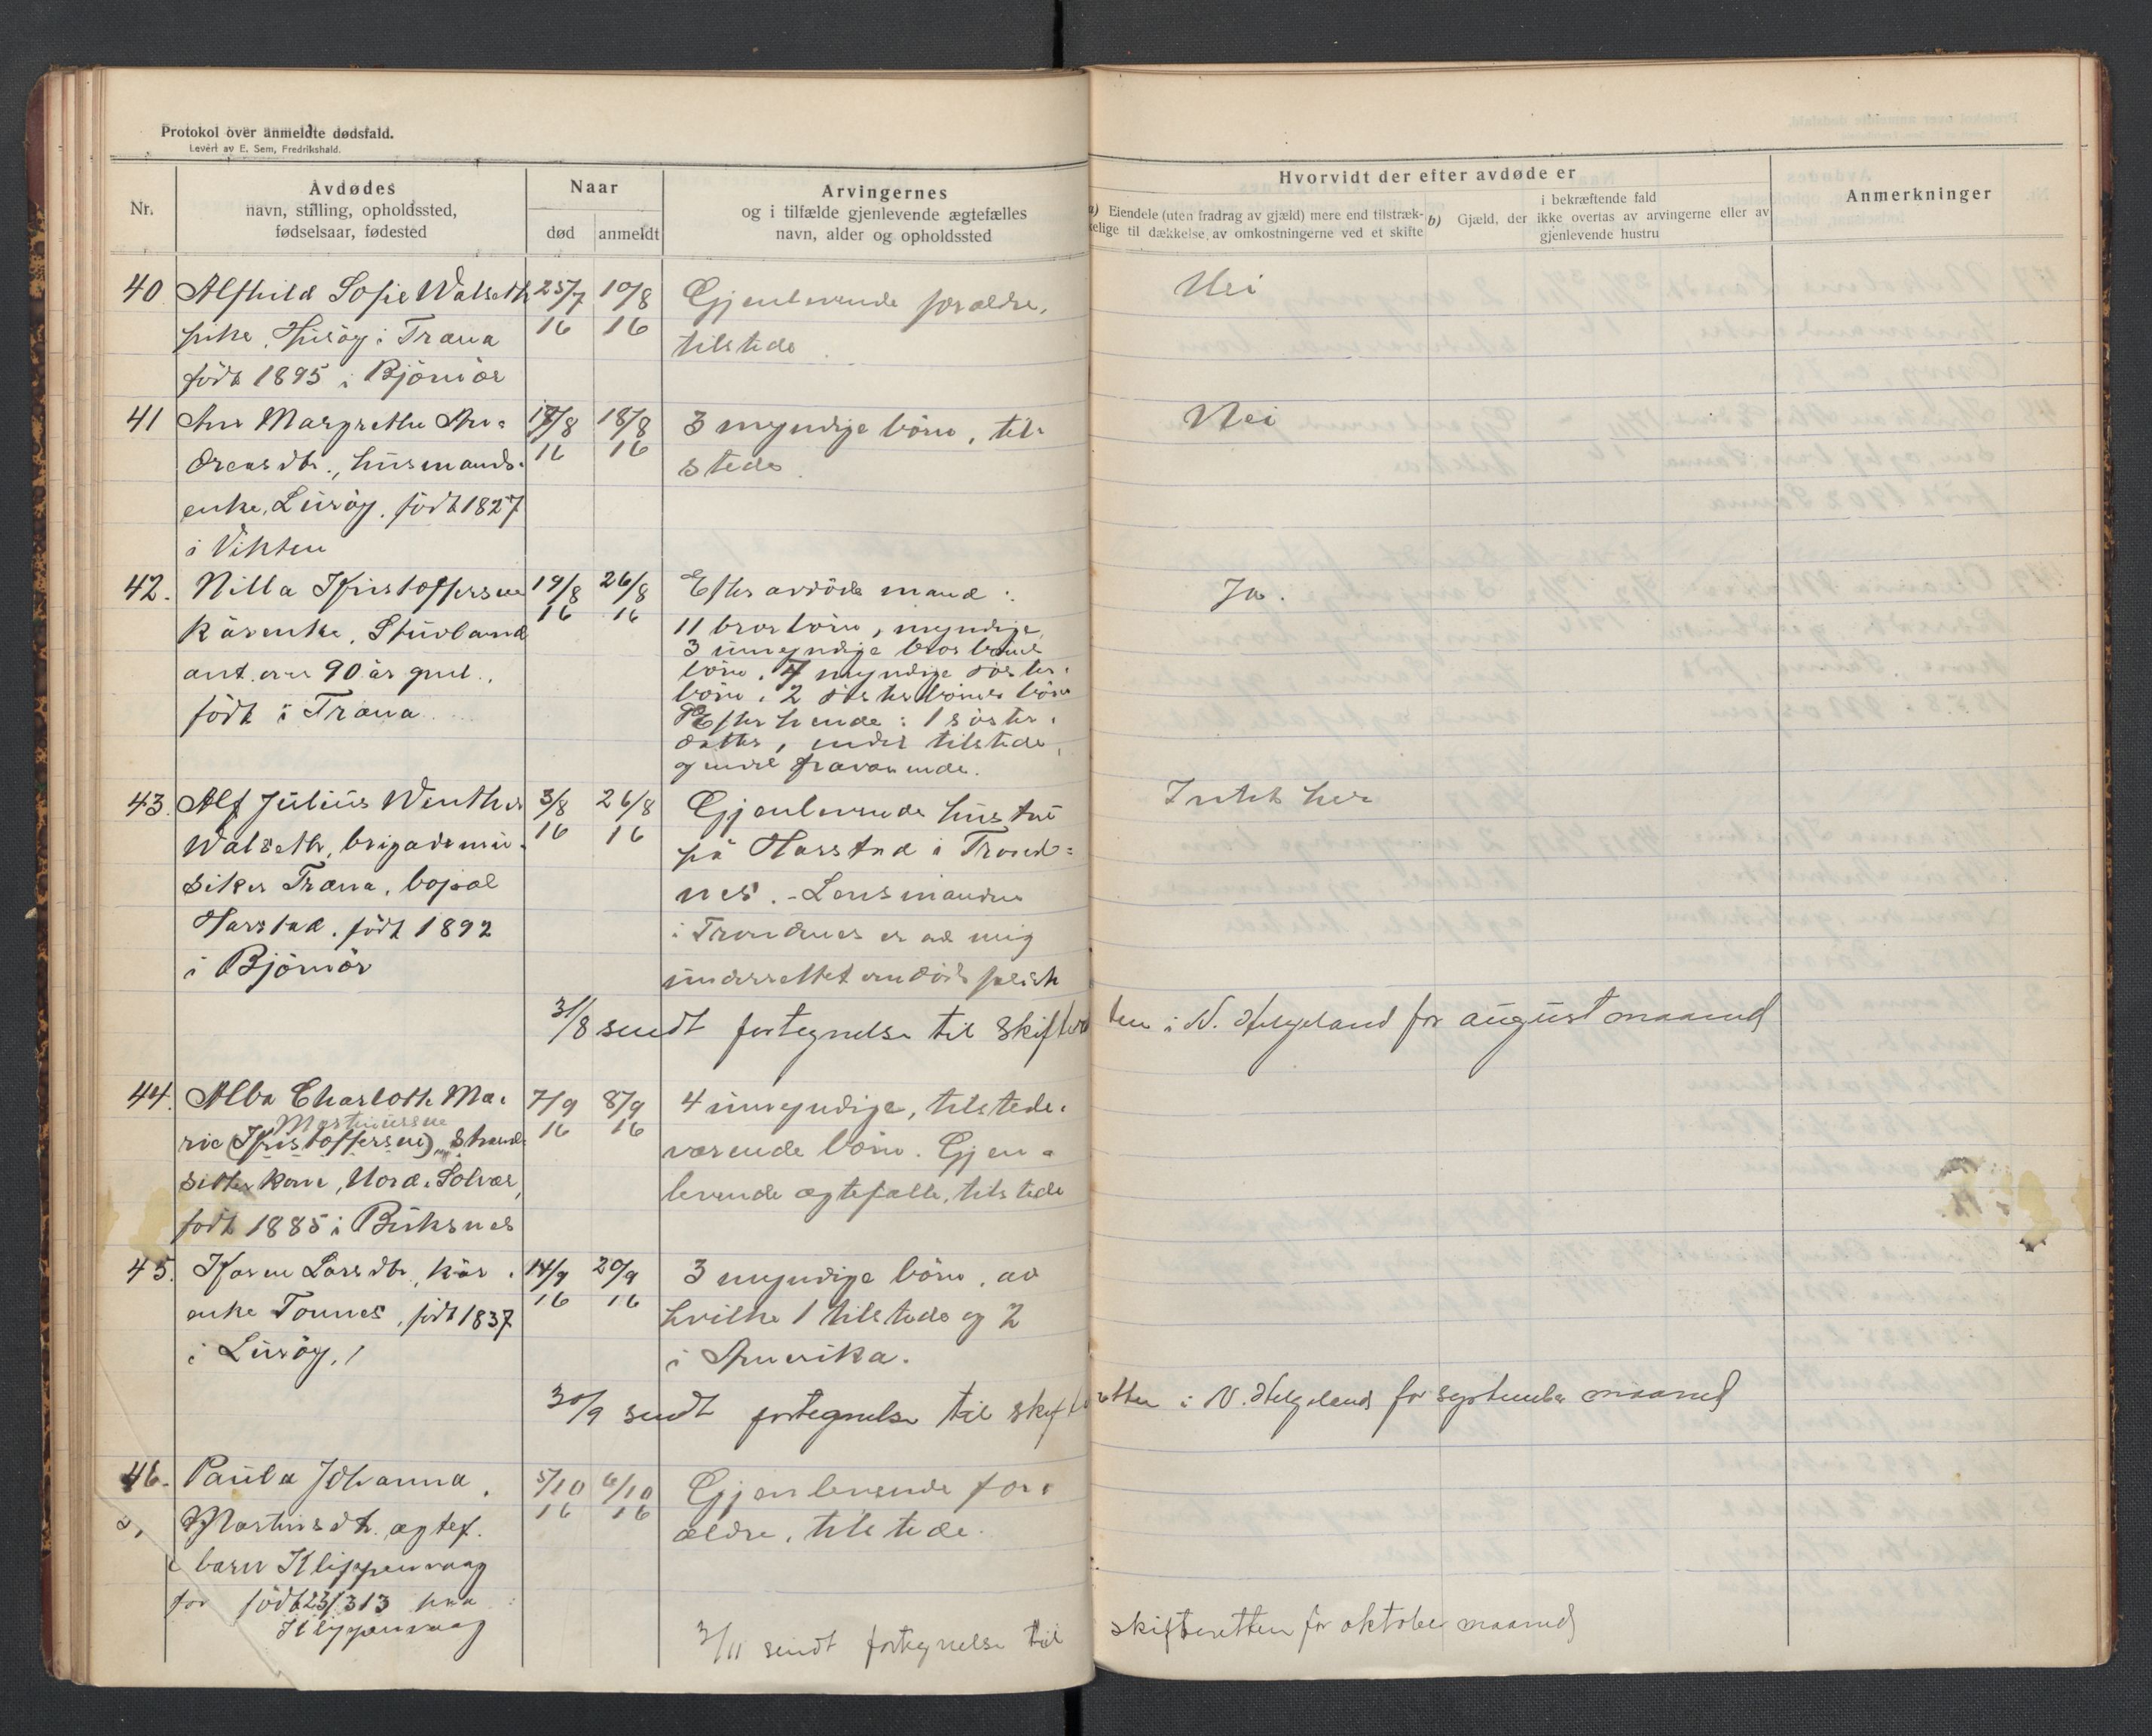 Protokol over anmeldte dødsfald.
Levert av E. Sem, Fredrikshald.
Nr.
Avdødes
navn, stilling, opholdssted,
fødselsaar, fødested
Naar
død
anmeldt
Arvingernes
og i tilfælde gjenlevende ægtefælles
navn, alder og opholdssted
Hvorvidt der efter avdøde er
a) Eiendele (uten fradrag av gjæld) mere end tilstræk-
kelige til dækkelse av omkostningerne ved et skifte
b) Gjæld, der
i bekræftende fald
ikke overtas av arvingerne eller av
gjenlevende hustru
Anmerkninger
40 Alfhild Sofie Walseth 25/7 10/8 Gjenlevende forældre, Nei
pike, Husøy i Træna 16 16 tilstede.
født 1895 i Bjørnør
41 Ane Margrethe An- 17/8 18/8 3 myndige børn, til- Nei
dreasdtr., husmands- 16 16 stede.
enke, Lurøy, født 1827
i Vikten
42. Nilla Kristoffersen 19/8 26/8 Efter avdøde mand: Ja.
kårenke, Stuvland 16 16 11 brorbørn, myndige,
ant. over 90 år gml., 3 umyndige brorbørns
født i Træna børn, 7 myndige søster-
børn, 2 søsterbørns børn
Efter hende: 1 søster-
datter, endel tilstede,
og endel fraværende.
43. Alf Julius Winther 3/8 26/8 Gjenlevende hustru Intet her
Walseth, brigademu- 16 16 på Harstad i Trond-
siker Træna, bopæl nes. - Lensmanden
Harstad, født 1892 i Trondenes er av mig
i Bjørnør underrettet om dødsfaldet
31/8 sendt fortegnelse til skifteretten i N. Helgeland for august maaned
44. Alba Charlotte Ma- 7/9 8/9 4 umyndige, tilstede-
Martinussen
rie (Kristoffersen), strand- 16 16 værende børn. Gjen-
sitterkone, Nord-Solvær, levende ægtefælle, tilstede
født 1885 i Buksnes
45. Karen Larsdtr, kår- 14/9 20/9 3 myndige børn, av
enke Tonnes, født 1837 16 16 hvilke 1 tilstede og 2
i Lurøy. i Amerika.
30/9 sendt fortegnelse til skifteretten i N. Helgeland for september maaned
46. Paula Johanna 5/10 6/10 Gjenlevende for-
Martinsdtr. ægtef. 16 16 ældre, tilstede.
barn Klippenvaag
født 23/3 13 paa
Klippenvaag
3/11 sendt fortegnelse til skifteretten for oktober maaned